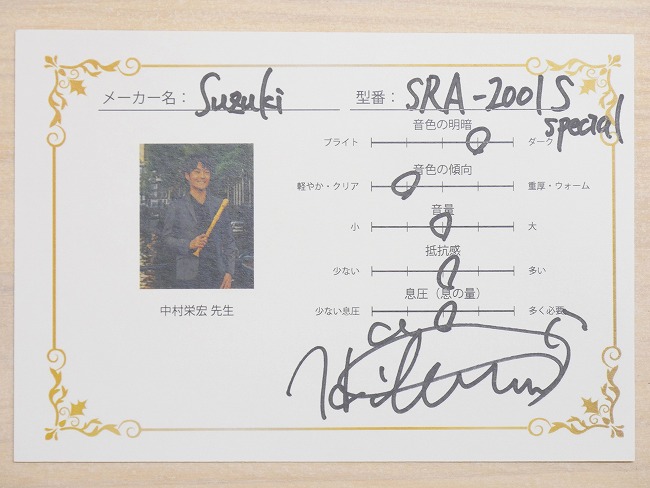 メーカー名： Suzuki
型番： SRA-2001S special
音色の明暗
ブライト ダーク
音色の傾向
軽やか・クリア 重厚・ウォーム
音量
小 大
抵抗感
少ない 多い
息圧（息の量）
少ない息圧 多く必要
中村栄宏 先生